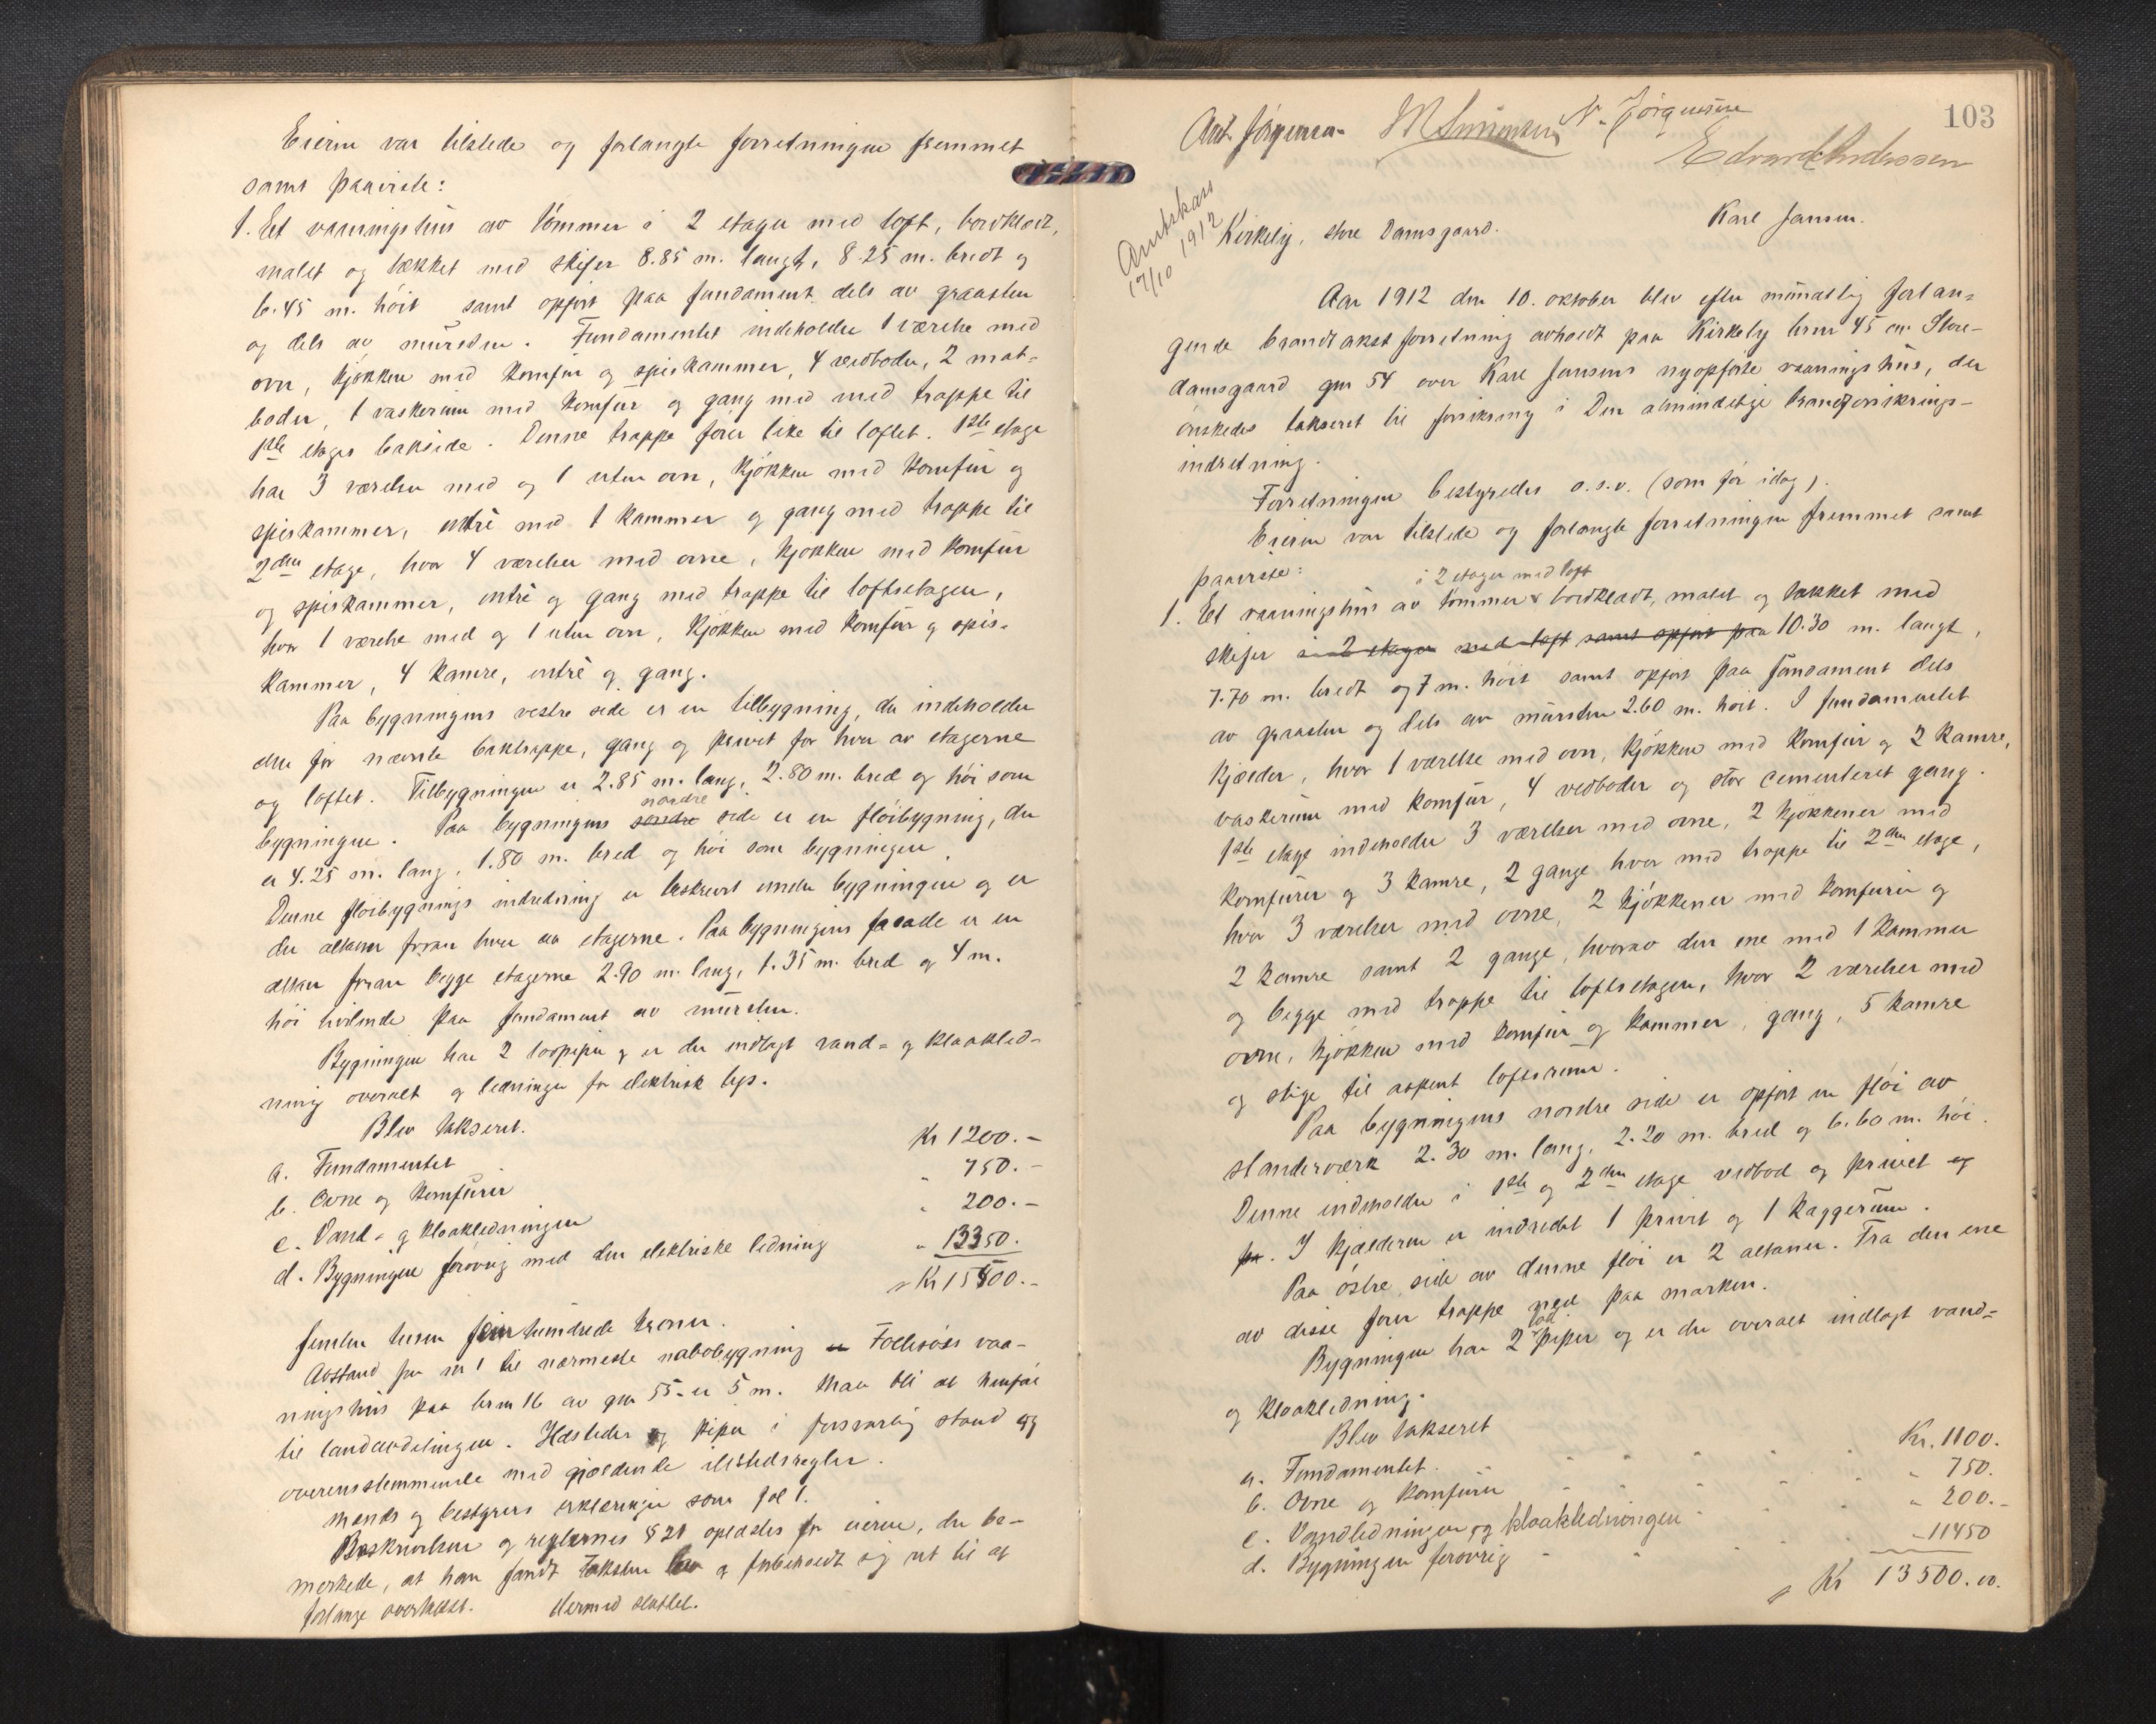 Eieren var tilstede og forlangte forretningen fremmet
samt paaviste:
1. Et vaaningshus av tømmer i 2 etager med loft, bordklædt,
malet og tækket med skifer 8.85 m. langt, 8.25 m. bredt og
6.45 m. høit samt opført paa fundament dels av graasten
og dels av mursten. Fundamentet indeholder 1 værelse med
ovn, kjøkken med komfur og spiskammer, 4 vedboder, 2 mat-
boder, 1 vaskerum med komfur og gang med med trappe til
1ste etages bakside. Denne trappe fører like til loftet. 1ste etage
har 3 værelser med og 1 uten ovn, kjøkken med komfur og
spiskammer, entrè med 1 kammer og gang med trappe til
2den etage, hvor 4 værelser med ovne, kjøkken med komfur
og spiskammer, entrè og gang med trappe til loftsetagen,
hvor 1 værelse med og 1 uten ovn, kjøkken med komfur og spis-
kammer, 4 kamre, entrè og gang.
Paa bygningens vestre side er en tilbygning, der indeholder
den før nævnte baktrappe, gang og privet for hver av etagerne
og loftet. Tilbygningen er 2.85 m. lang, 2.80 m. bred og høi som
bygningen. Paa bygningens søndre nordre side er en fløibygning, der
er 4.25 m. lang, 1.80 m. bred og høi som bygningen.
Denne fløibygnings indredning er beskrevet under bygningen og er
der altaner foran hver av etagerne. Paa bygningens facade er en
altan foran begge etagerne 2.90 m. lang, 1.35 m. bred og 4 m.
høi hvilende paa fundament av mursten.
Bygningen har 2 løspiper og er der indlagt vand- og kloakled-
ning overalt og ledninger for elektrisk lys.
Blev takseret.
a. Fundamentet Kr 1200.-
b. Ovne og komfurer " 750.-
c. Vand- og kloakledningen " 200.-
d. Bygningen forøvrig med den elektriske ledning " 13350.
Kr 15500.-
femten tusen fem hundrede kroner.
Avstand fra nr 1 til nærmeste nabobygning er Follesøs vaa-
ningshus paa brnr 16 av gnr 55 er 5 m. Maa bli at henføre
til landavdelingen. Ildsteder og piper i forsvarlig stand og
overensstemmende med gjældende ildstedsregler.
Mænds og bestyrers erklæringer som fol 1.
Beskrivelsen og reglernes § 21 oplæstes for eieren, der be-
merkede, at han fandt taksten lav og forbeholdt sig ret til at
forlange overtakst. Hermed sluttet.
103
Ant. Jørgensen M Simonsen N. Jørgensen
Edvard Andersen
Amtskass
17/10 1912
Kirkely, store Damsgaard.
Karl Jansen.
Aar 1912 den 10. oktober blev efter mundtlig forlan-
gende brandtakstforretning avholdt paa Kirkely brnr 45 av Store-
damsgaard gnr 54 over Karl Jansens nyopførte vaaningshus, der
ønskedes takseret til forsikring i Den almindelige brandforsikrings-
indretning.
Forretningen bestyredes o.s.v. (som før idag).
Eieren var tilstede og forlangte forretningen fremmet samt
paaviste:
i 2 etager med loft
1. Et vaaningshus av tømmer bordklædt, malet og tækket med
skifer i 2 etager med loft samt opført paa 10.30 m. langt,
7.70 m. bredt og 7 m. høit samt opført paa fundament dels
av graasten og dels av mursten 2.60 m. høit. I fundamentet
kjælder, hvor 1 værelse med ovn, kjøkken med komfur og 2 kamre,
vaskerum med komfur, 4 vedboder og stor cementeret gang.
1ste etage indeholder 3 værelser med ovne, 2 kjøkkener med
komfurer og 3 kamre, 2 gange hvor med trappe til 2den etage,
hvor 3 værelser med ovne, 2 kjøkkener med komfurer og
2 kamre samt 2 gange, hvorav den ene med 1 kammer
og begge med trappe til loftsetagen, hvor 2 værelser med
ovne, kjøkken med komfur og kammer, gang, 5 kamre
og stige til aapent loftsrum.
Paa bygningens nordre side er opført en fløi av
standerværk 2.30 m. lang, 2.20 m. bred og 6.60 m. høi.
Denne indeholder i 1ste og 2den etage vedbod og privet og
pr. I kjælderen er indredet 1 privet og 1 kaggerum.
Paa østre side av denne fløi er 2 altaner. Fra den ene
av disse fører trappe ned paa marken.
Bygningen har 2 piper og er der overalt indlagt vand-
og kloakledning.
Blev takseret
a. Fundamentet Kr. 1100.
b. Ovne og komfurer " 750.
c. Vandledningen og kloakledningen " 200.-
d. Bygningen forøvrig " 11450
Kr 13500.00.